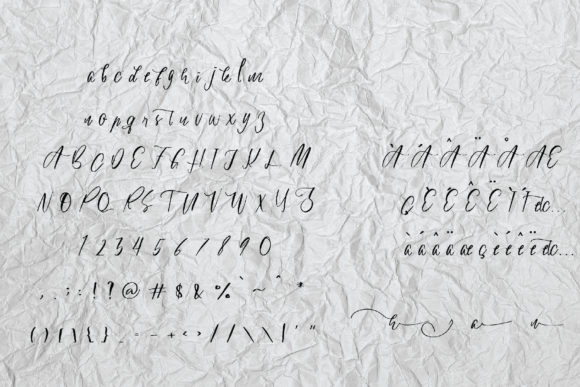 a b c d e f g h i j k l m
n o p q r s t u v w x y z
A B C D E F G H I J K L M
N O P Q R S T U V W X Y Z
1 2 3 4 5 6 7 8 9 0
, . ; : ! ? @ # $ & % ` ~ ^ *
( ) [ ] { } _ = - + < > / / \ \ | ' "
À Á Â Ä Å Æ
Ç È É Ê Ë Ì Í etc...
à á â ä æ ç è é ê ë etc...
h a n